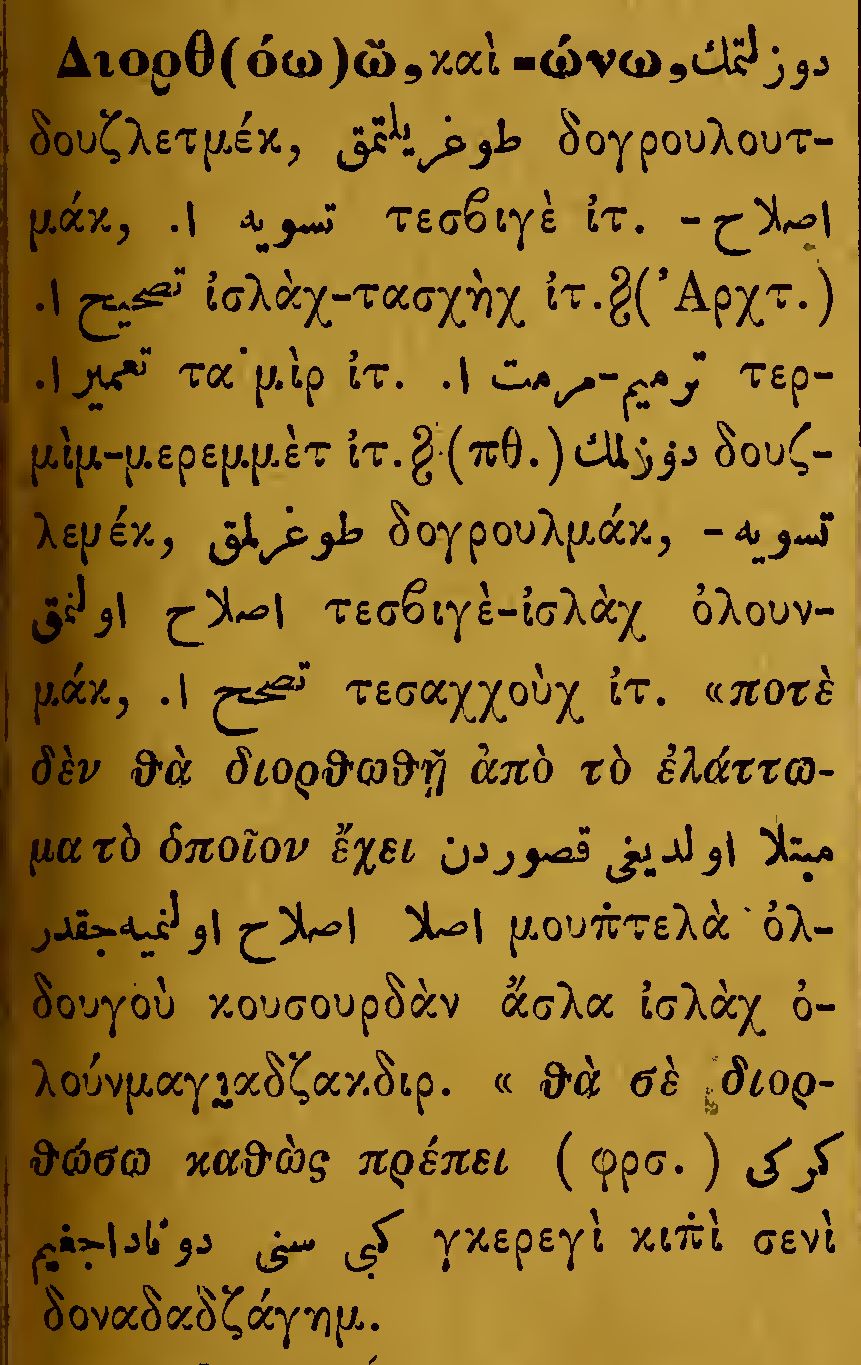 Διορθ(όω)ῶ, καὶ -ώνω, دوزلتمك
δουζλετμέκ, طوغریلتمق δογρουλουτ-
μάκ, .ا تسویه τεσβιγὲ ἰτ. - اصلاح
.ا تصحیح ἰσλὰχ-τασχὴχ ἰτ. ϗ (Ἀρχτ.)
.ا تعمیر τα῾μὶρ ἰτ. .ا ترمیم-مرمت τερ-
μὶμ-μερεμμὲτ ἰτ. ϗ (πθ.) دوزلمك δουζ-
λεμέκ, طوغرلمق δογρουλμάκ, - تسویه
اصلاح اولنمق τεσβιγὲ-ἰσλὰχ ὀλουν-
μάκ, .ا تصحح τεσαχχοὺχ ἰτ. «ποτὲ
δὲν θὰ διορθωθῇ ἀπὸ τὸ ἐλάττω-
μα τὸ ὁποῖον ἔχει مبتلا اولدیغی قصوردن
اصلا اصلاح اولنمیه‌جقدر μουπ̇τελὰ ὀλ-
δουγοὺ κουσουρδὰν ἄσλα ἰσλὰχ ὀ-
λούνμαγιαδζακδιρ. « θὰ σὲ διορ-
θώσω καθὼς πρέπει (φρσ.) كركی
كبی سنی دوناداجغیم γκερεγὶ κιπ̇ὶ σενὶ
δοναδαδζάγημ.